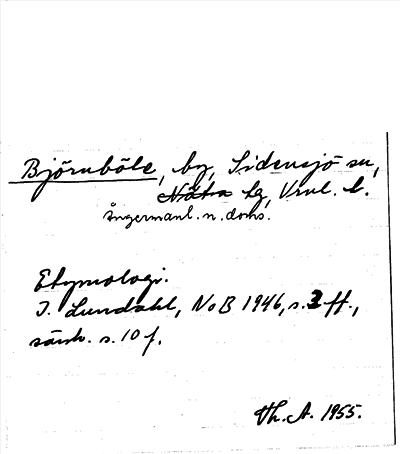 Björnböle, by, Sidensjö sn,
Nätra tg, Vnl. l.
Ångermanl. n. doms.
Etymologi.
I. Lundahl, NoB 1946, s. 2 ff.,
särsk. s. 10 f.
Th. A. 1955.